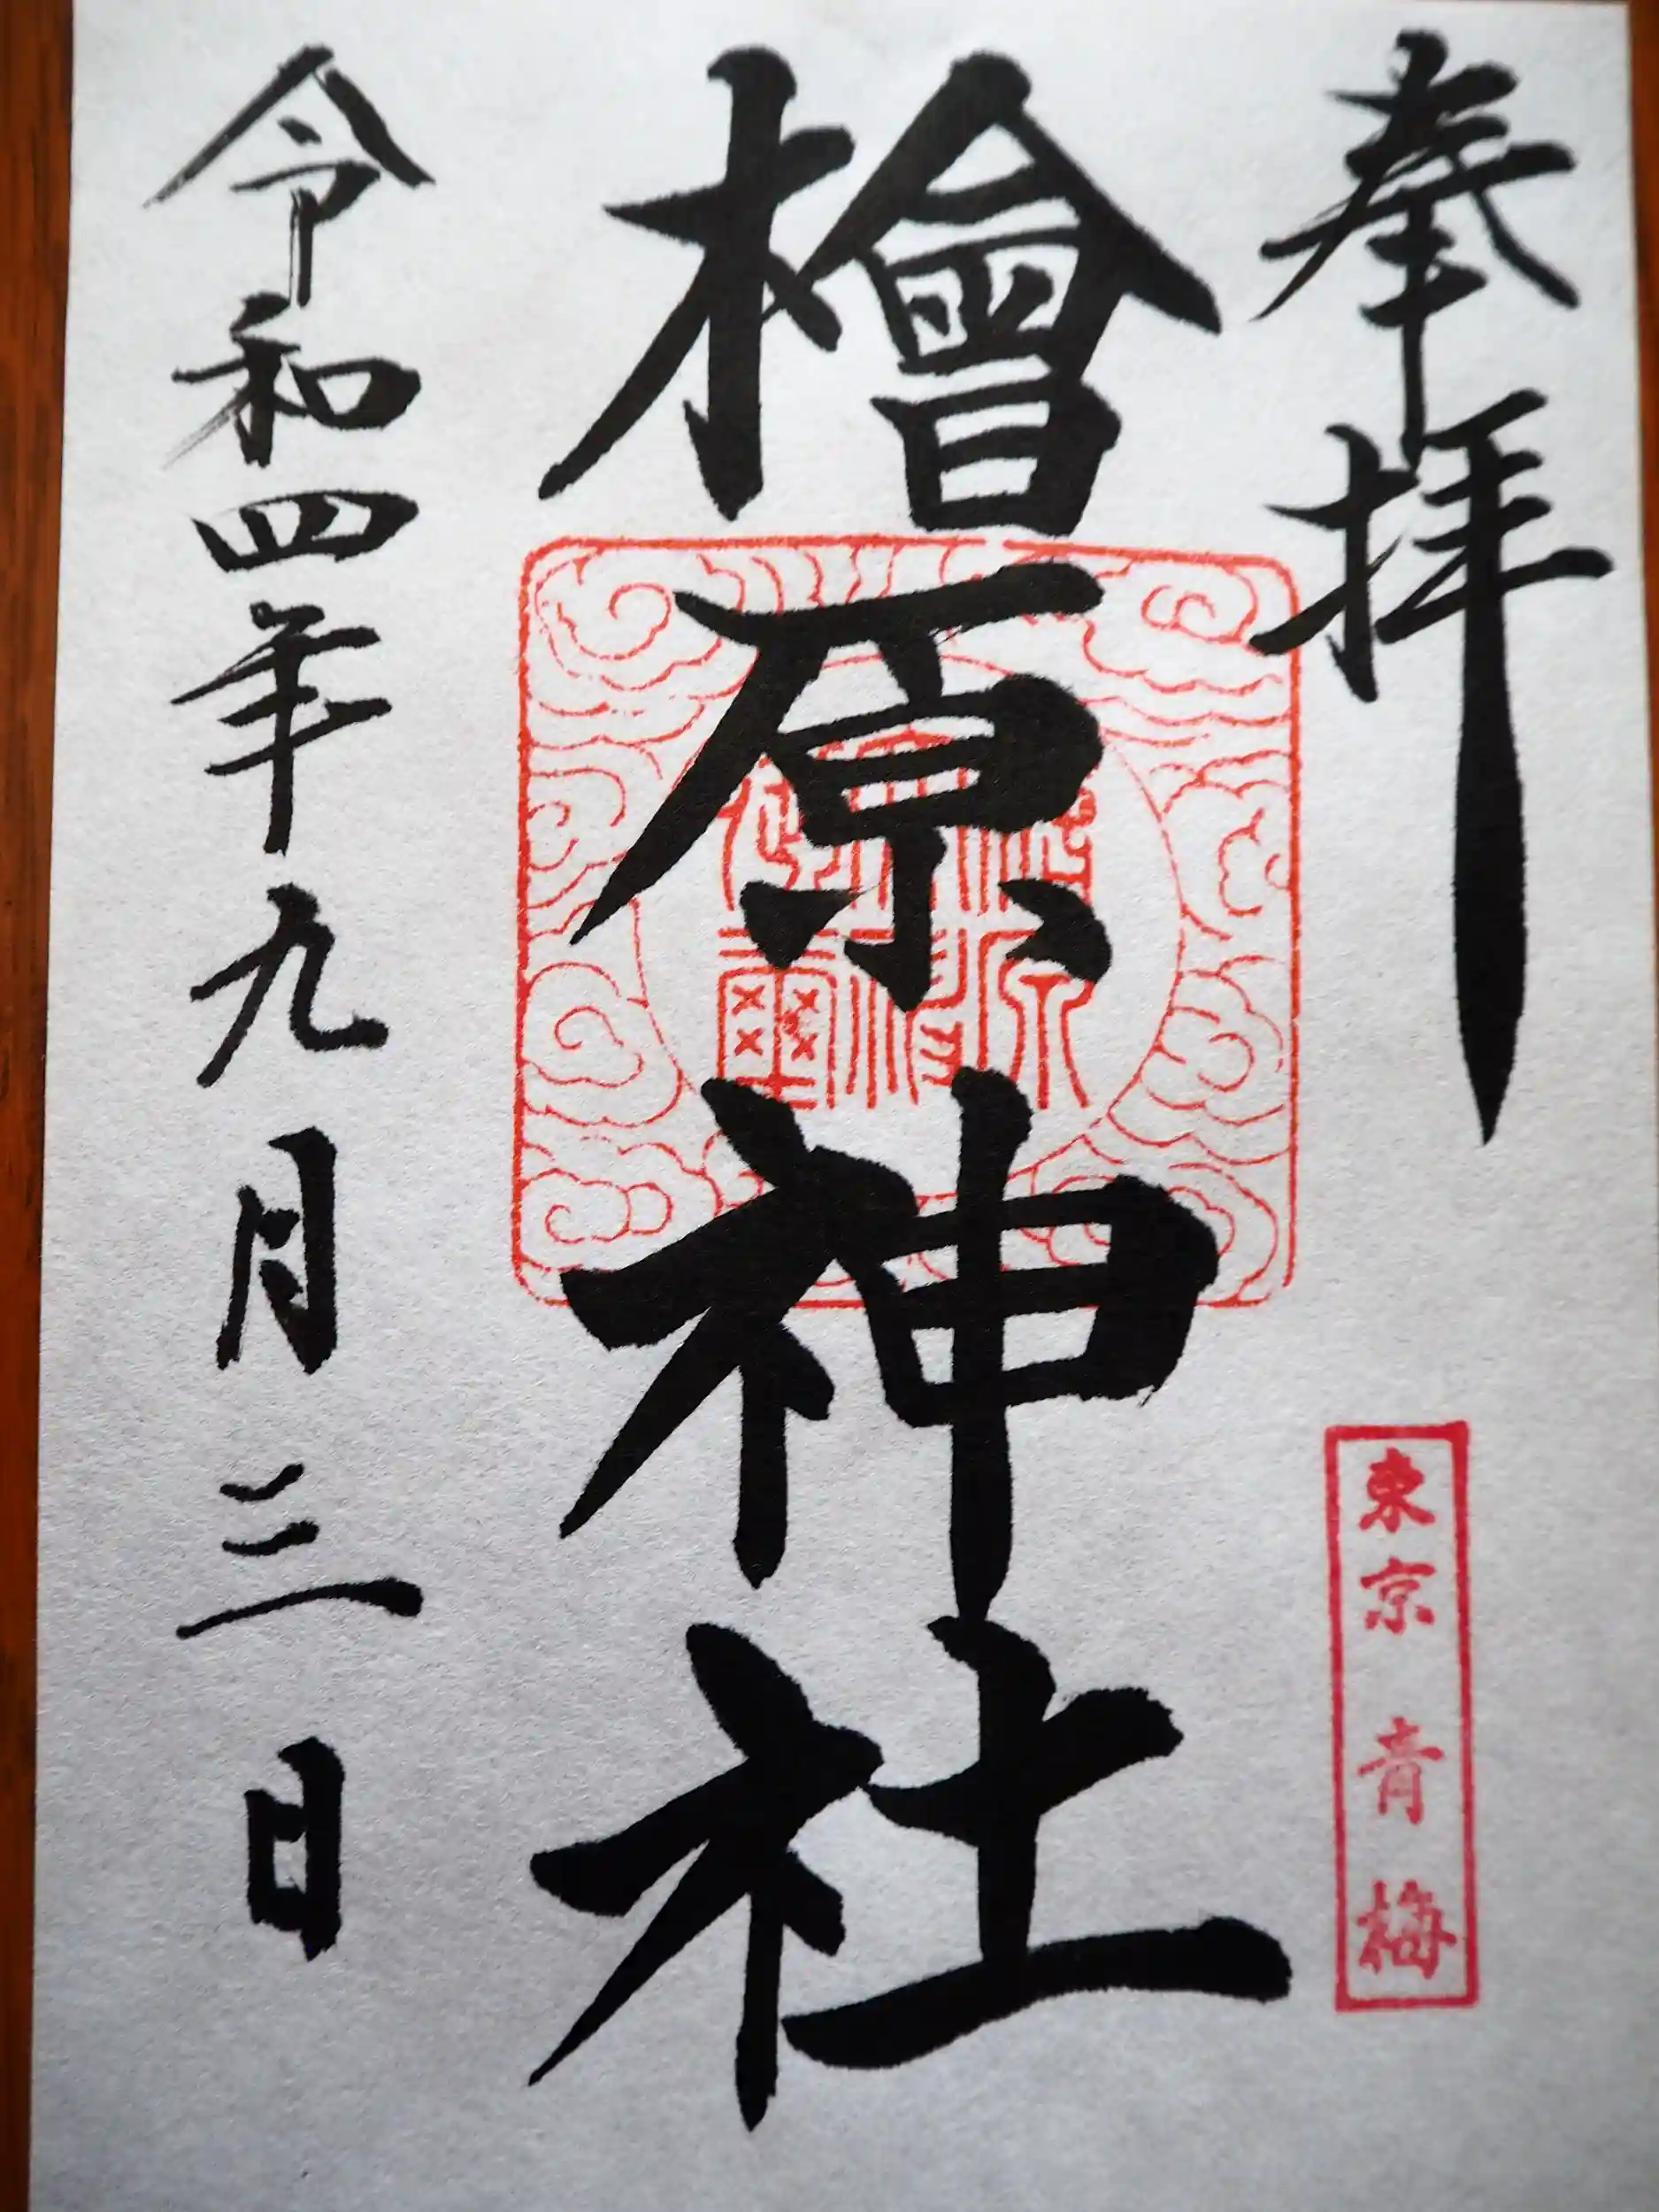 奉拝
東京 青梅
檜原神社
令和四年九月三日